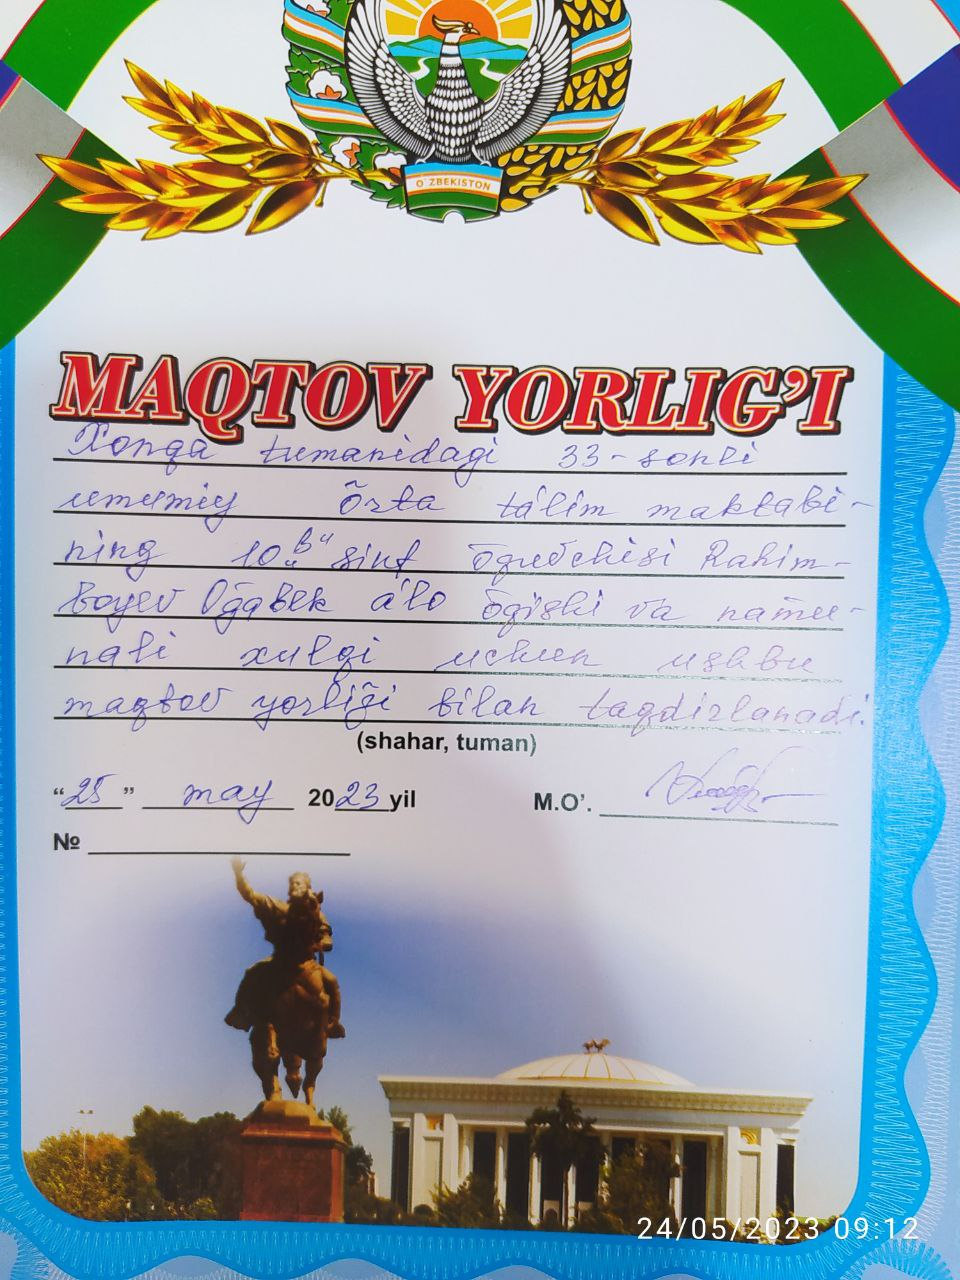 O'ZBEKISTON
MAQTOV YORLIG'I
Xonqa tumanidagi 33-sonli
umumiy õrta ta'lim maktabi-
ning 10 „b" sinf õquvchisi Rahim-
boyev Oğabek a'lo õqishi va namu-
nali xulqi uchun ushbu
maqtov yorliği bilan taqdirlanadi.
(shahar, tuman)
"25" may 2023 yil M.O'.
№
24/05/2023 09:12